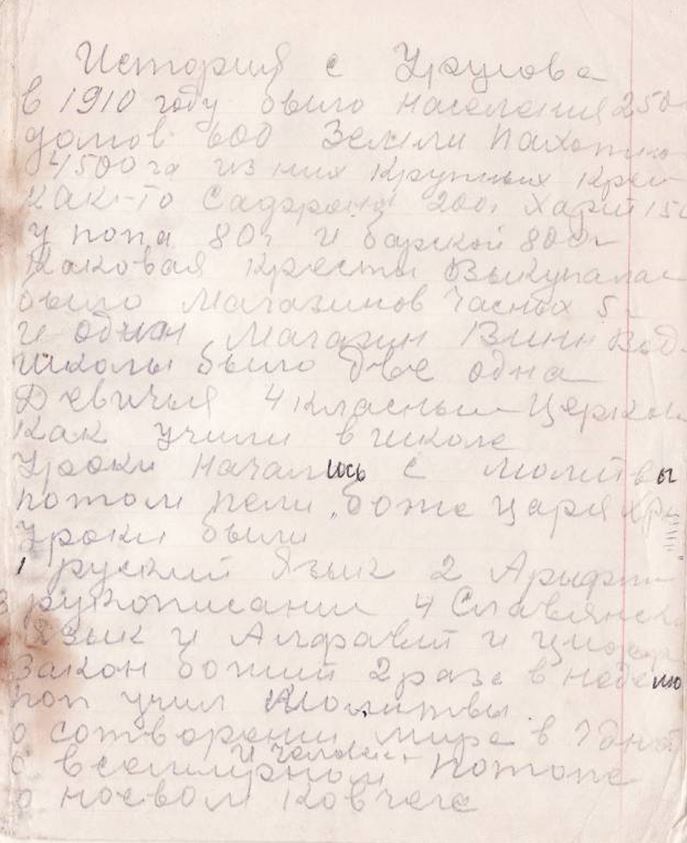 История с Урусова
в 1910 году было населения 250
домов 600 Земли Пахотно
4500 га из них крупных крес
как-то 200г Харит 150
у попа 80г и барской 800г
Каковая Кресты Выкупалас
было Магазинов Часных 5
и один Магазин Винн Вод
школы было две одна
Девичья 4 класным Церков
как учили в школе
уроки начались с молитвы
потом пели „боже царя хра
уроки были
1 русский Язык 2 Арыфм
3 рукописании 4 Славянск
Язык и Алфавит и цифр
закон божий 2 раза в неделю
поп учил Молитвы
о сотворении мира в 7 дней
и человек
о всемирном потопе
о ноевом ковчеге